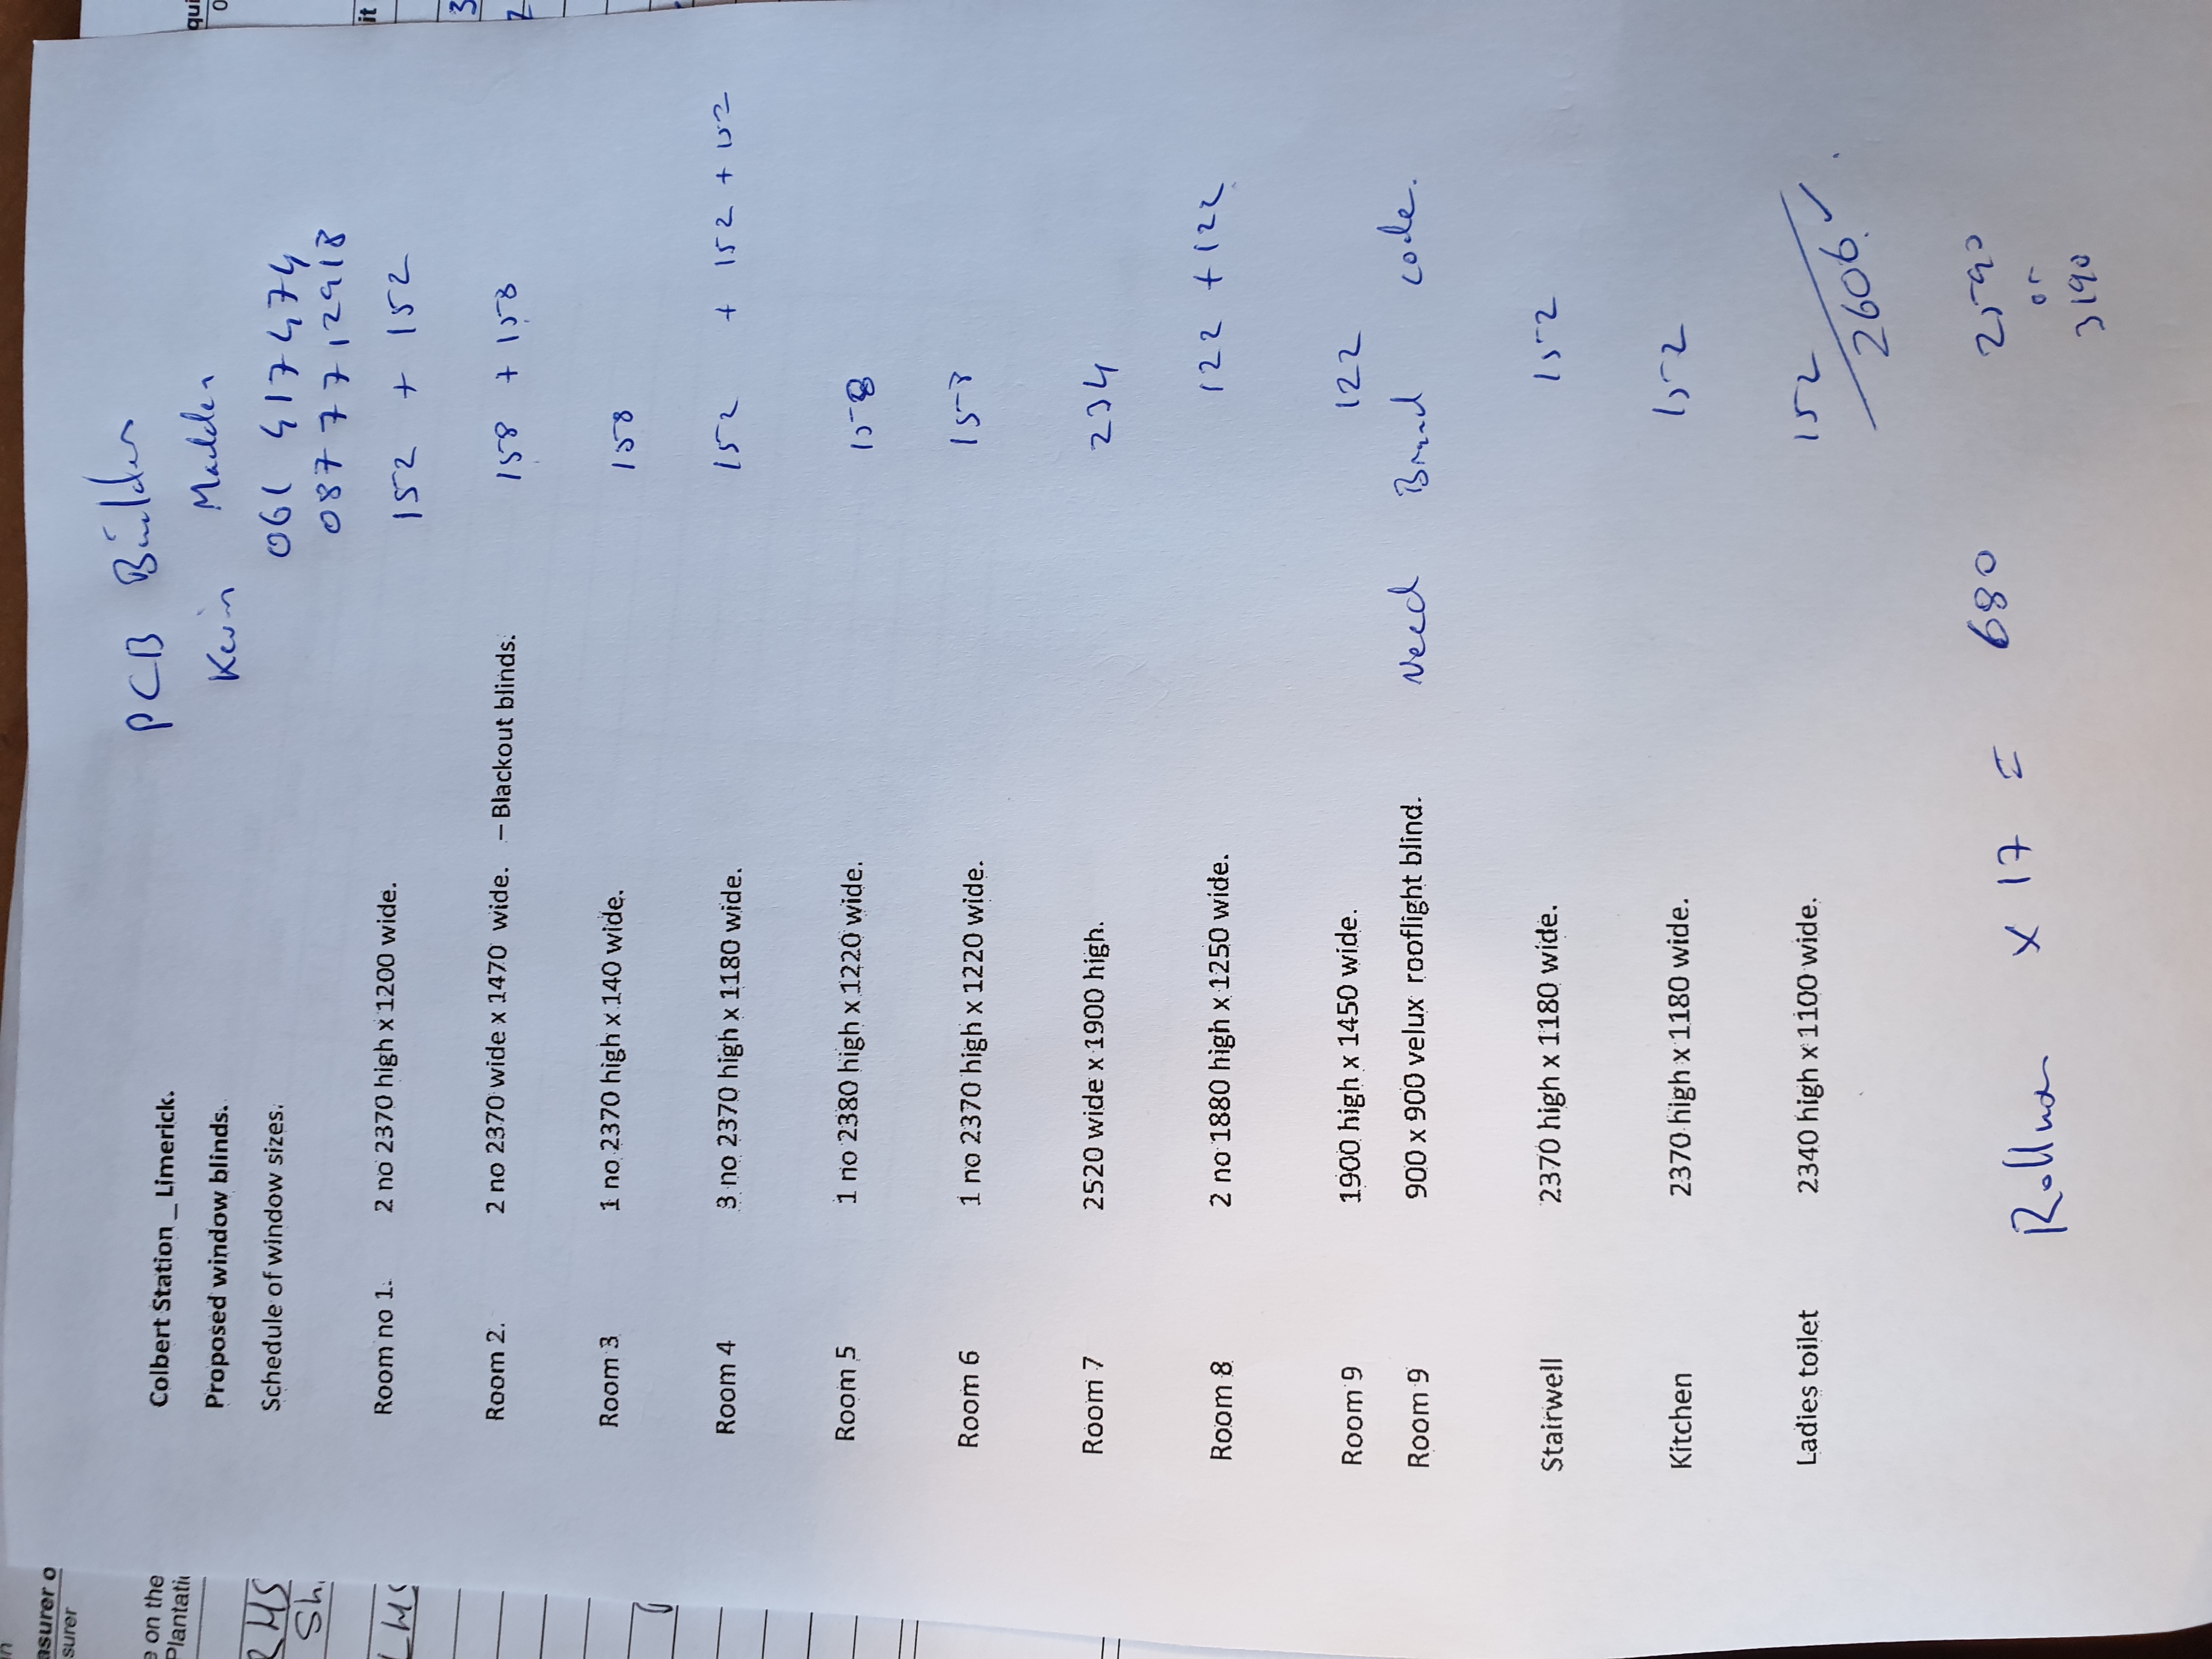 PCB Builders
Kevin Madden
061 417474
087 7712918
Colbert Station _ Limerick.
Proposed window blinds.
Schedule of window sizes.
Room no 1. 2 no 2370 high x 1200 wide. 152 + 152
Room 2. 2 no 2370 wide x 1470 wide. – Blackout blinds. 158 + 158
Room 3 1 no 2370 high x 140 wide. 158
Room 4 3 no 2370 high x 1180 wide. 152 + 152 + 152
Room 5 1 no 2380 high x 1220 wide. 158
Room 6 1 no 2370 high x 1220 wide. 158
Room 7 2520 wide x 1900 high. 234
Room 8 2 no 1880 high x 1250 wide. 122 + 122
Room 9 1900 high x 1450 wide. 122
Room 9 900 x 900 velux rooflight blind. Need Brand code.
Stairwell 2370 high x 1180 wide. 152
Kitchen 2370 high x 1180 wide. 152
Ladies toilet 2340 high x 1100 wide. 152
2606
x 17 = 680 2590
or
3190
asurer o
surer
e on the
Plantati
RHS
Sh.
LHS
qui
it